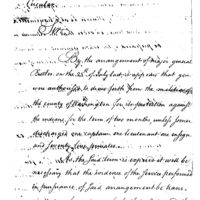 Circular
By the arrangement of Major General
Butler on the 25th of July last, it appears that you
were authorised to draw forth from the militia of
the county of Washington for its protection against
the indians for the term of two months unless sooner
discharged one captain one lieutenant one ensign
and seventy five privates.
As the said term is expired it will be
necessary that the evidence of the service performed
in pursuance of said arrangement be trans-